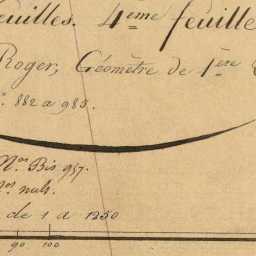 euilles. 4eme feuille
Roger, Géomètre de 1ère
º. 882 a 985.
Nos Bis 957.
nos nuls.
de 1 a 1250
90 100